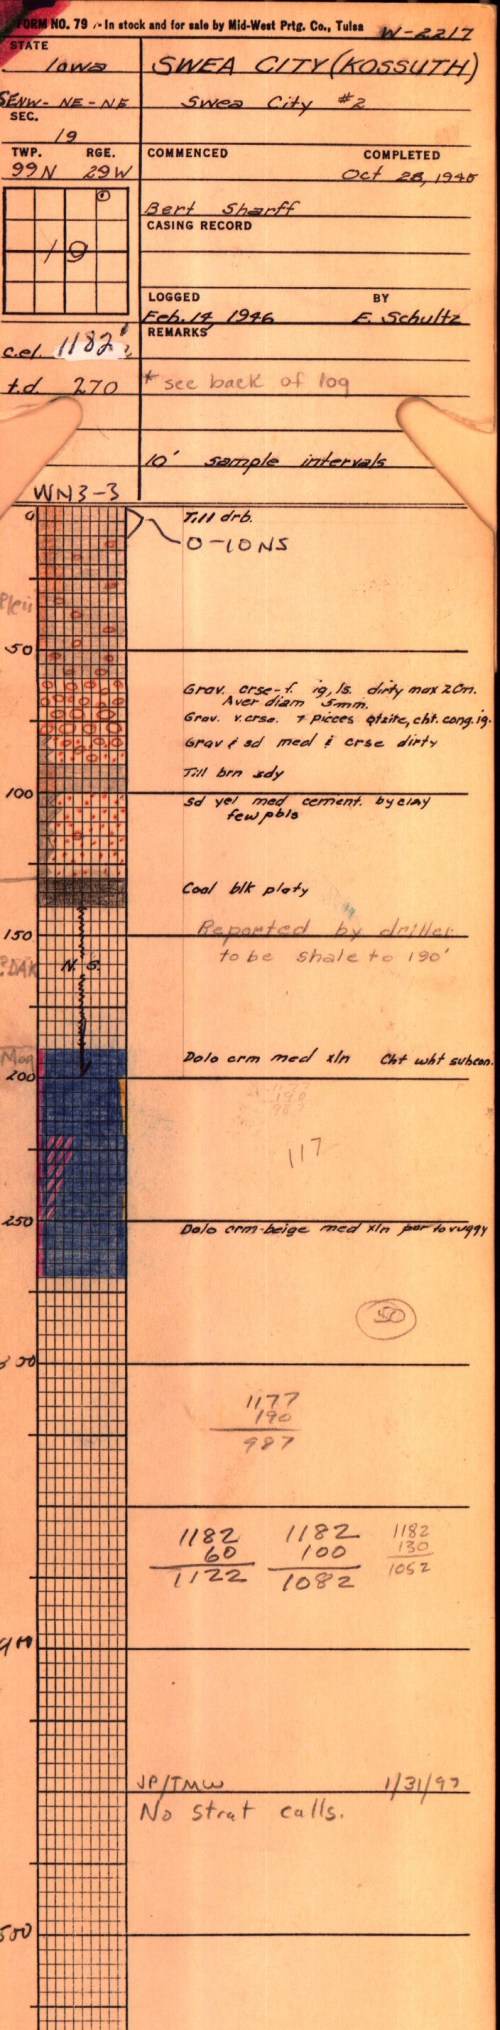 FORM NO. 79 - In stock and for sale by Mid-West Prtg. Co., Tulsa W-2217
STATE
Iowa SWEA CITY (KOSSUTH)
SENW-NE-NE Swea City #2
SEC.
19
TWP. RGE. COMMENCED COMPLETED
99N 29W Oct 28, 1945
Bert Sharff
CASING RECORD
19
LOGGED BY
Feb. 14 1946 E. Schultz
REMARKS
c.el. 1182'
t.d. 270 * see back of log
10' sample intervals
WN3-3
0 Till drb.
0-10NS
Plei
50
Grav. crse-f. ig, ls. dirty max 2cm.
Aver diam 5mm.
Grav. v.crse. + pieces qtzite, cht. cong. ig.
Grav & sd med & crse dirty
Till brn sdy
100
sd yel med cement. by clay
few pbls
Coal blk platy
Reported by driller
150
to be shale to 190'
?DAK N.S.
Maq Dolo crm med xln Cht wht subcon.
200
1177
190
987
117
250
Dolo crm-beige med xln por to vuggy
50
300
1177
190
987
1182 1182 1182
60 100 130
1122 1082 1052
400
JP/TMW 1/31/97
No strat calls.
500